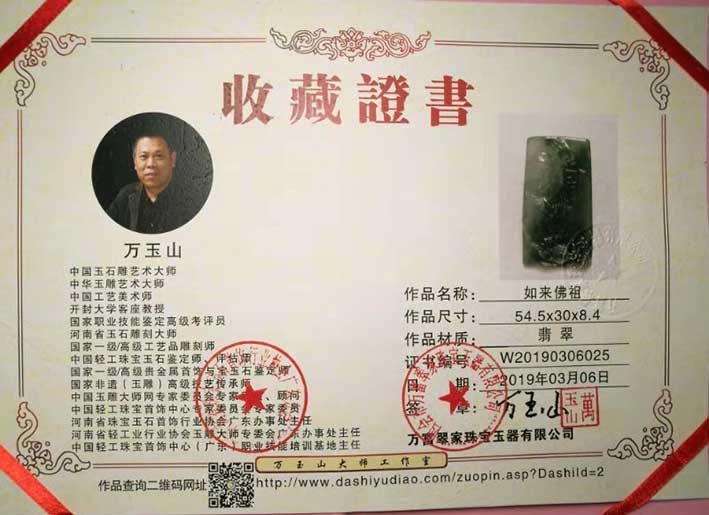 收藏證書
万玉山
中国玉石雕艺术大师
中华玉雕艺术大师
中国工艺美术师
开封大学客座教授
国家职业技能鉴定高级考评员
河南省玉石雕刻大师
国家一级/高级工艺品雕刻师
中国轻工珠宝玉石鉴定师、评估师
国家一级/高级贵金属首饰与宝玉石鉴定师
国家非遗（玉雕）高级技艺传承师
中国玉雕大师网专家委员会专家、顾问
中国轻工珠宝首饰中心专家委员会专家委员
河南省珠宝玉石首饰行业协会广东办事处主任
河南省轻工业行业协会玉雕大师专委会广东办事处主任
中国轻工珠宝首饰中心（广东）职业技能培训基地主任
作品名称: 如来佛祖
作品尺寸: 54.5x30x8.4
作品材质: 翡翠
证书编号: W20190306025
日期: 2019年03月06日
签章: 万玉山
萬玉山
万富翠家珠宝玉器有限公司
万玉山大师工作室
作品查询二维码网址 http://www.dashiyudiao.com/zuopin.asp?DashiId=2